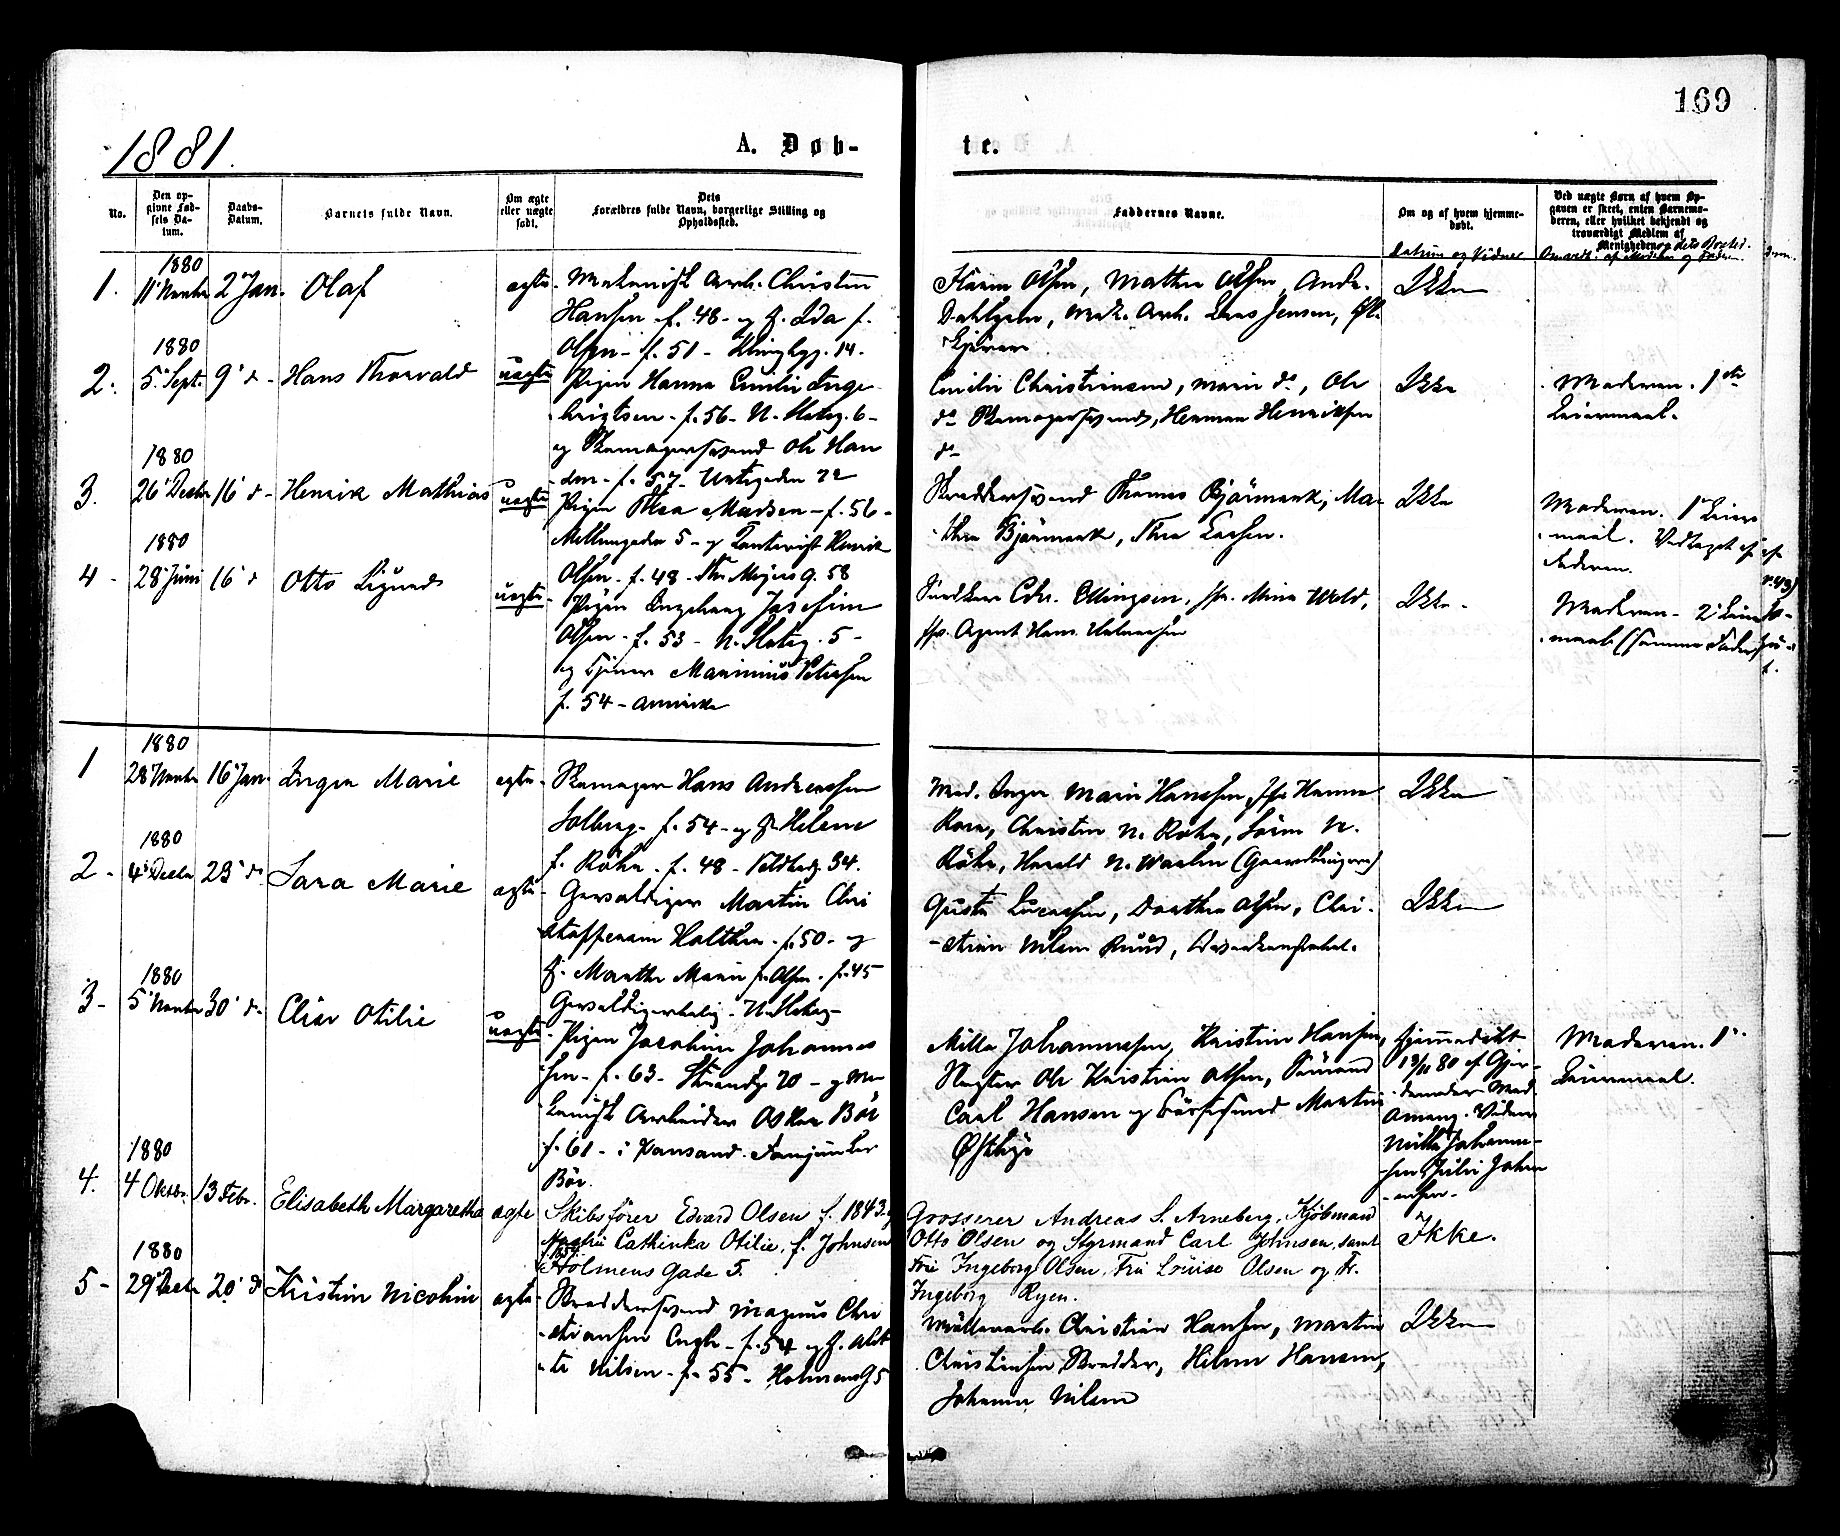 169
1881.
A. Døb-
te.
No.
Den op-
givne Fød-
sels Da-
tum.
Daabs-
Datum.
Barnets fulde Navn.
Om ægte
eller uægte
født.
Dets
Forældres fulde Navn, borgerlige Stilling og
Opholdssted.
Faddernes Navne.
Om og af hvem hjemme-
døbt.
Datum og Vidner
Ved uægte Børn af hvem Op-
gaven er skeet, enten Barnemo-
deren, eller hvilket bekjendt og
troværdigt Medlem af
Menigheden
1880
1. 11 Novbr 2 Jan. Olaf ægte. Mekanisk Arb. Christen
Hansen f. 48 - og H. Ida f.
Olsen - f. 51 - 14.
Karen Olsen, Mathea Olsen, Andr.
Dahlgren, Mek. Arb. Lars Jensen,
Ikke
1880
2. 5 Sept. 9 d. Hans Thorvald uægte Pigen Hanna Emilie Inge
brigtsen - f. 56 - N. Slotsg. 6 -
og Skomagersvend Ole Han
sen - f. 57 - 22
Emilie Christiansen, Marie do, Ole
do Skomagersvend, Herman Henriksen
do
Ikke
Moderen. 1ste
Leiermaal.
1880
3. 26 Decbr 16 d. Henrik Mathias uægte Pigen Thea Madsen - f. 56 -
Mellemgaden 5 - og Henrik
Olsen - f. 48 - Thv. Meyers G. 58
Skræddersvend Thomas Bjørmark, Ma-
thea Bjørmark, Thea Larsen.
Ikke
Moderen. 1 Leier
maal. Vedtaget af
Faderen.
1880
4 - 28 Juni 16 d Otto Sigurd uægte. Pigen Ingeborg Josefine
Olsen - f. 53 - N. Slotsg. 5 -
og Tjener Marinius Petersen
f. 54 - Amerika
Chr. Ellingsen, Mina Wold,
Agent Hans
Ikke.
Moderen - 2 Leier
maal (samme Fader)
1880
1 28 Novbr 16 Jan. Inga Marie ægte. Skomager Hans Andreassen
Solberg - f. 54 - og H. Helene
f. Röhn - f. 48 - 34.
Mad. Inger Marie Hansen, Hanna
Christen N. Röhn, Sörm N.
Röhn, Harald N.
Ikke
1880
2 - 4 Decbr 23 d. Sara Marie ægte. Gevaldiger Martin Chri
stoffersen Holther - f. 50 - og
H. Marthe Marie f. Olsen - f. 45
N. Slotsg.
Gusta Lucassen, Dorthea Olsen, Chri-
stian Nilsen Ruud,
Ikke
1880
3 - 5 Novbr 30 d. Clise Otilie uægte. Pigen Jacobine Johannes
sen - f. 63 - Strandg. 20 - og Me
kanisk Arbeider Oskar Böe
f. 61 - i
Böe.
Milla Johannessen, Kristine Hansen,
Slagter Ole Kristian Olsen, Sömand
Carl Hansen og Martin
Østbye
Hjemmedøbt
13/11 80 af Gjor-
demoder Mad.
Vidner
Milla Johanne-
sen, Julie Johan-
nesen.
Moderen. 1
Leiermaal.
1880
4. 4 Oktbr. 13 Febr. Elisabeth Margaretha ægte Skibsfører Edvard Olsen f. 1843 og
Hustru Cathinka Otilie, f. Johnsen
Holmens Gade 5.
Grosserer Andreas S. Arneberg, Kjøbmand
Otto Olsen og Styrmand Carl Johnsen, samt
Frü Ingeborg Olsen, Frü Lövise Olsen og Fr.
Ingeborg Ryen.
Ikke.
1880
5 - 29 Decbr 20 d Kristine Nicoline ægte Skræddersvend Magnus Chri
stiansen Engh - f. 54 og H.
Nilsen - f. 55 - Holmensg 5
Christian Hansen, Martin
Christensen Skrædder, Helene Hansen,
Johanne Nilsen
Ikke